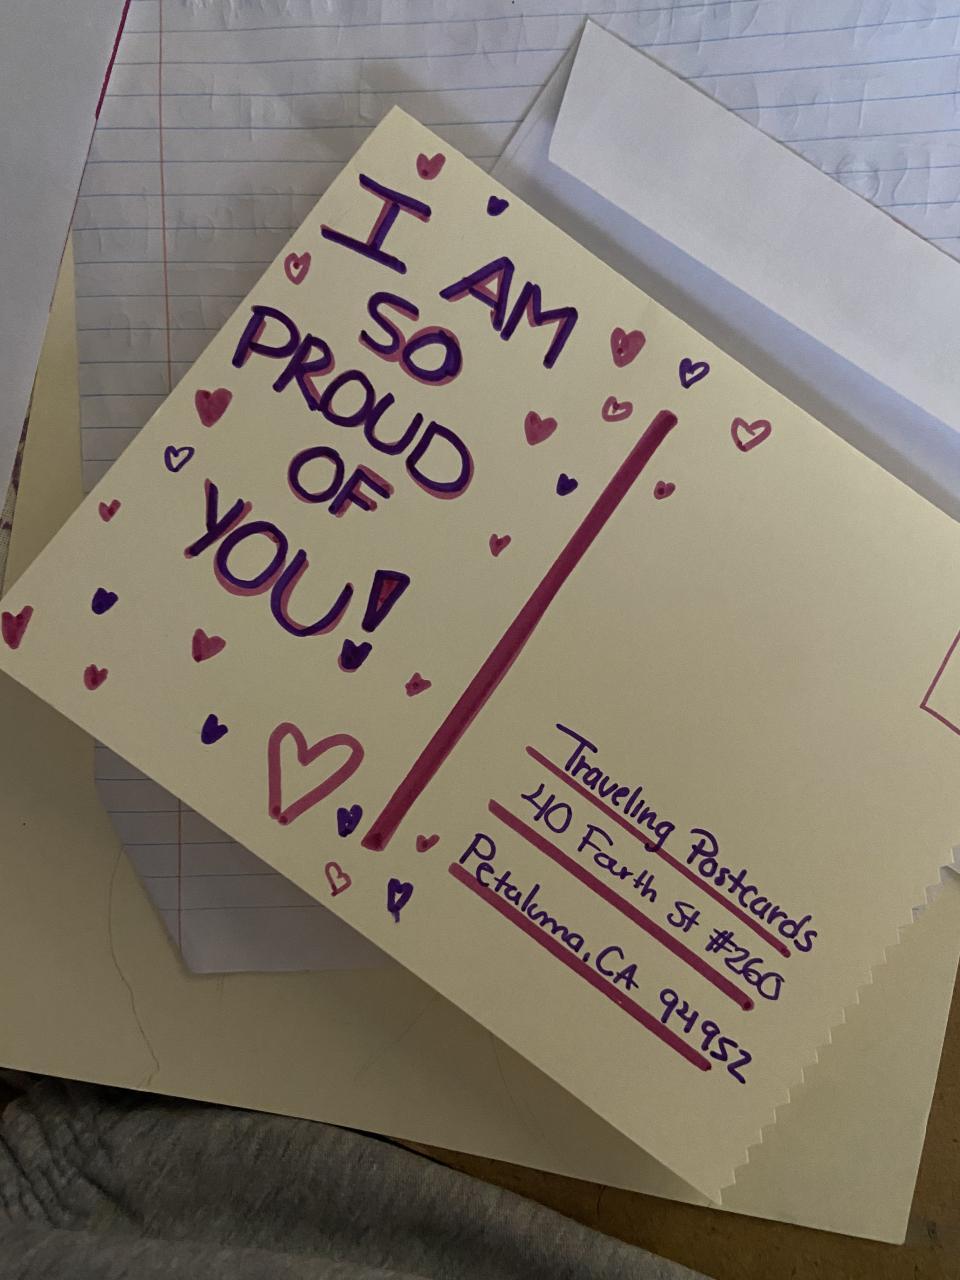 I AM
SO
PROUD
OF
YOU!
Traveling Postcards
40 Fourth St #260
Petaluma, CA 94952